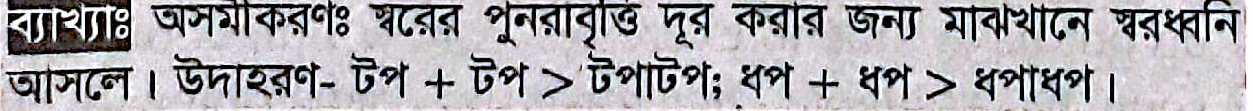 ব্যাখ্যাঃ অসমীকরণঃ স্বরের পুনরাবৃত্তি দূর করার জন্য মাঝখানে স্বরধ্বনি
আসলে। উদাহরণ- টপ + টপ > টপাটপ; ধপ + ধপ > ধপাধপ।